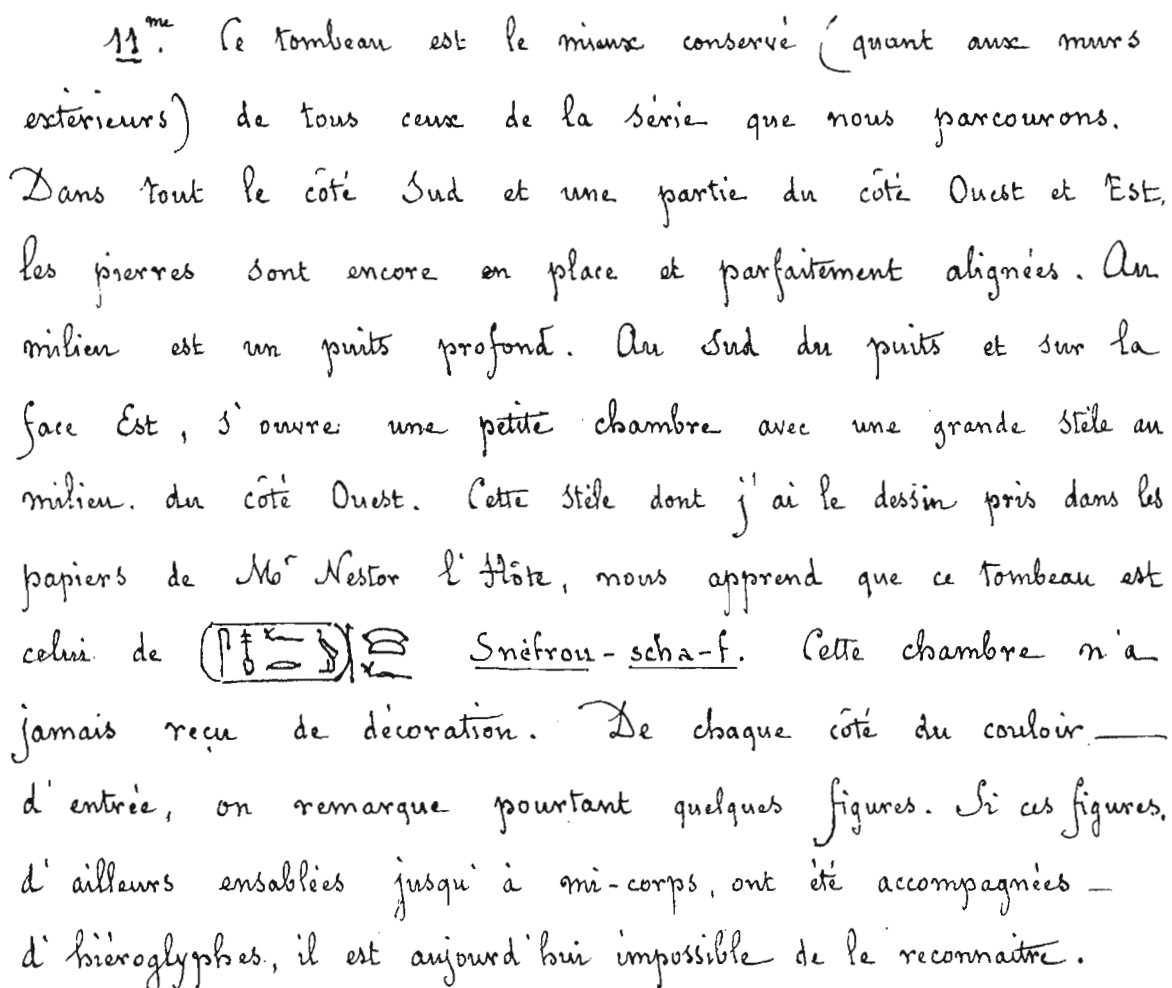 11me. Ce tombeau est le mieux conservé (quant aux murs
extérieurs) de tous ceux de la série que nous parcourons.
Dans tout le côté Sud et une partie du côté Ouest et Est,
les pierres sont encore en place et parfaitement alignées. Au
milieu est un puits profond. Au Sud du puits et sur la
face Est, s'ouvre une petite chambre avec une grande stèle au
milieu. du côté Ouest. Cette stèle dont j'ai le dessin pris dans les
papiers de Mr Nestor l'Hôte, nous apprend que ce tombeau est
celui de Snéfrou-scha-f. Cette chambre n'a
jamais reçu de décoration. De chaque côté du couloir —
d'entrée, on remarque pourtant quelques figures. Si ces figures,
d'ailleurs ensablées jusqu'à mi-corps, ont été accompagnées —
d'hiéroglyphes, il est aujourd'hui impossible de le reconnaitre.